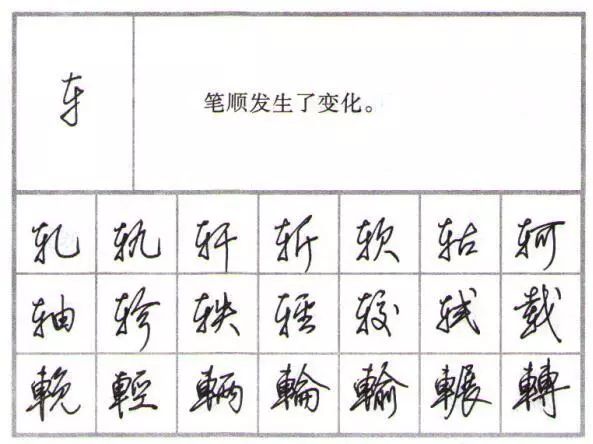 车
笔顺发生了变化。
轧 轨 轩 斩 软 轱 轲
轴 轸 轶 轻 较 轼 载
輓 輕 輛 輪 輸 輾 轉